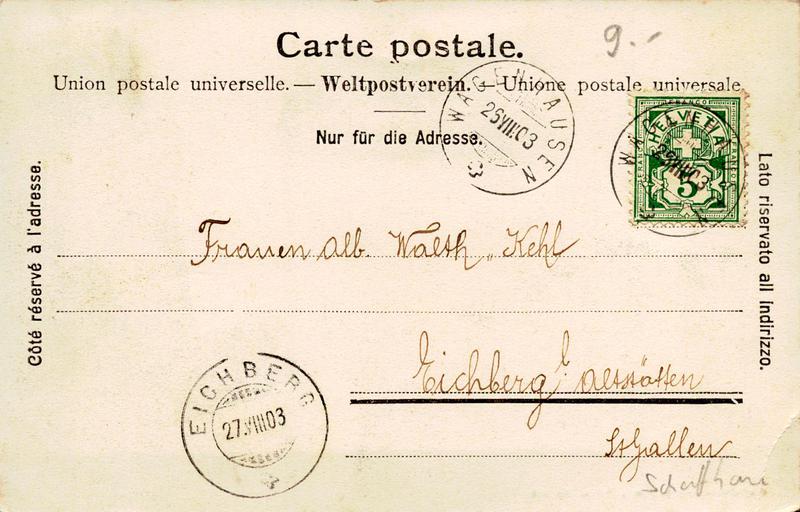 Carte postale.
9.-
Union postale universelle. — Weltpostverein. — Unione postale universale
Nur für die Adresse.
WAGENHAUSEN
26 VIII 03
FRANCO
HELVETIA
5
Côté réservé à l'adresse.
Lato riservato all Indirizzo.
Frauen Alb. Walth. Kehl
Eichberg b/ Altstätten
St Gallen
EICHBERG
27.VIII 03